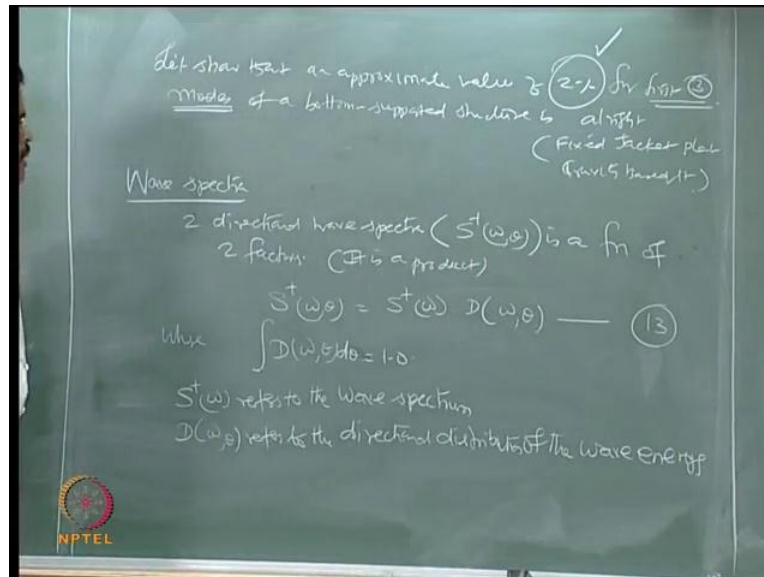 show that an approximate value of 2% for first ③
modes of a bottom-supported structure is alright
(Fixed Jacket
Gravity based
Wave spectra
2 directional wave spectra (S⁺(ω,θ)) is a fn of
2 factors. (It is a product)
S⁺(ω,θ) = S⁺(ω) D(ω,θ) —— ⑬
where ∫D(ω,θ)dθ = 1.0
S⁺(ω) refers to the wave spectrum
D(ω,θ) refers to the directional distribution of the wave energy
NPTEL